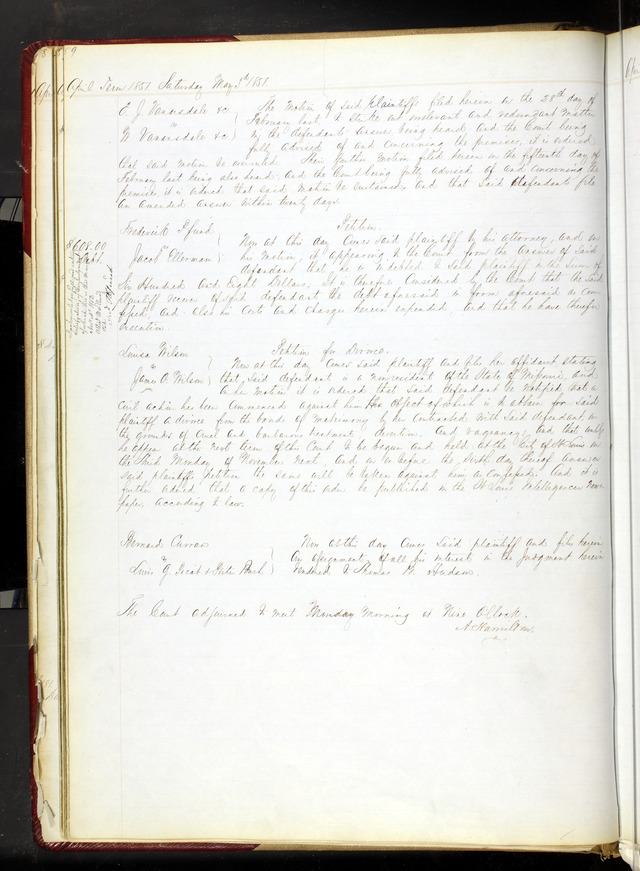 April Term 1851. Saturday May 3rd 1851.
E. J. Vanarsdale &c } The motion of said Plaintiffs filed herein on the 28th day of
vs } February last to strike out irrelevant and redundant matter
W Vanarsdale &c } in the defendants answer being heard and the Court being
fully advised of and concerning the premises, it is ordered
that said motion be overruled. Their further motion filed herein on the fifteenth day of
February last being also heard and the Court being fully advised of and concerning the
premises it is ordered that said motion be sustained, and that said defendants file
an amended answer within twenty days.
Frederick Pfund } Petition.
vs } Now at this day comes said plaintiff by his attorney, and on
Jacob Ellerman } his motion, it appearing to the Court from the answer of said
defendant that he is indebted to said Plaintiff in the sum of
Six Hundred and Eight Dollars. It is therefore considered by the Court that the said
plaintiff recover of said defendant the debt aforesaid in form aforesaid so con
fessed and also his costs and charges herein expended, and that he have therefor
execution.
$608.00
Debt.
Louisa Wilson } Petition for Divorce.
vs } Now at this day comes said plaintiff and files her affidavit stating
James O. Wilson } that said defendant is a nonresident of the State of Missouri, and
on her motion it is ordered that said defendant be notified that a
civil action has been commenced against him the object of which is to obtain for said
plaintiff a divorce from the bonds of matrimony by her contracted with said defendant on
the grounds of cruel and barbarous treatment, desertion, and vagrancy, and that unless
he appear at the next term of this Court to be begun and held at the City of St Louis on
the third Monday of November next, and on or before the sixth day thereof answer
said plaintiffs petition the same will be taken against him as confessed. And it is
further ordered that a copy of this order be published in the St Louis Intelligencer News
paper according to law.
Bernard Curran } Now at this day comes said plaintiff and files herein
vs } an assignment of all his interest in the judgment herein
rendered to Thomas H. Hudson.
The Court adjourned to meet Monday morning at Nine O'Clock.
A. Hamilton.